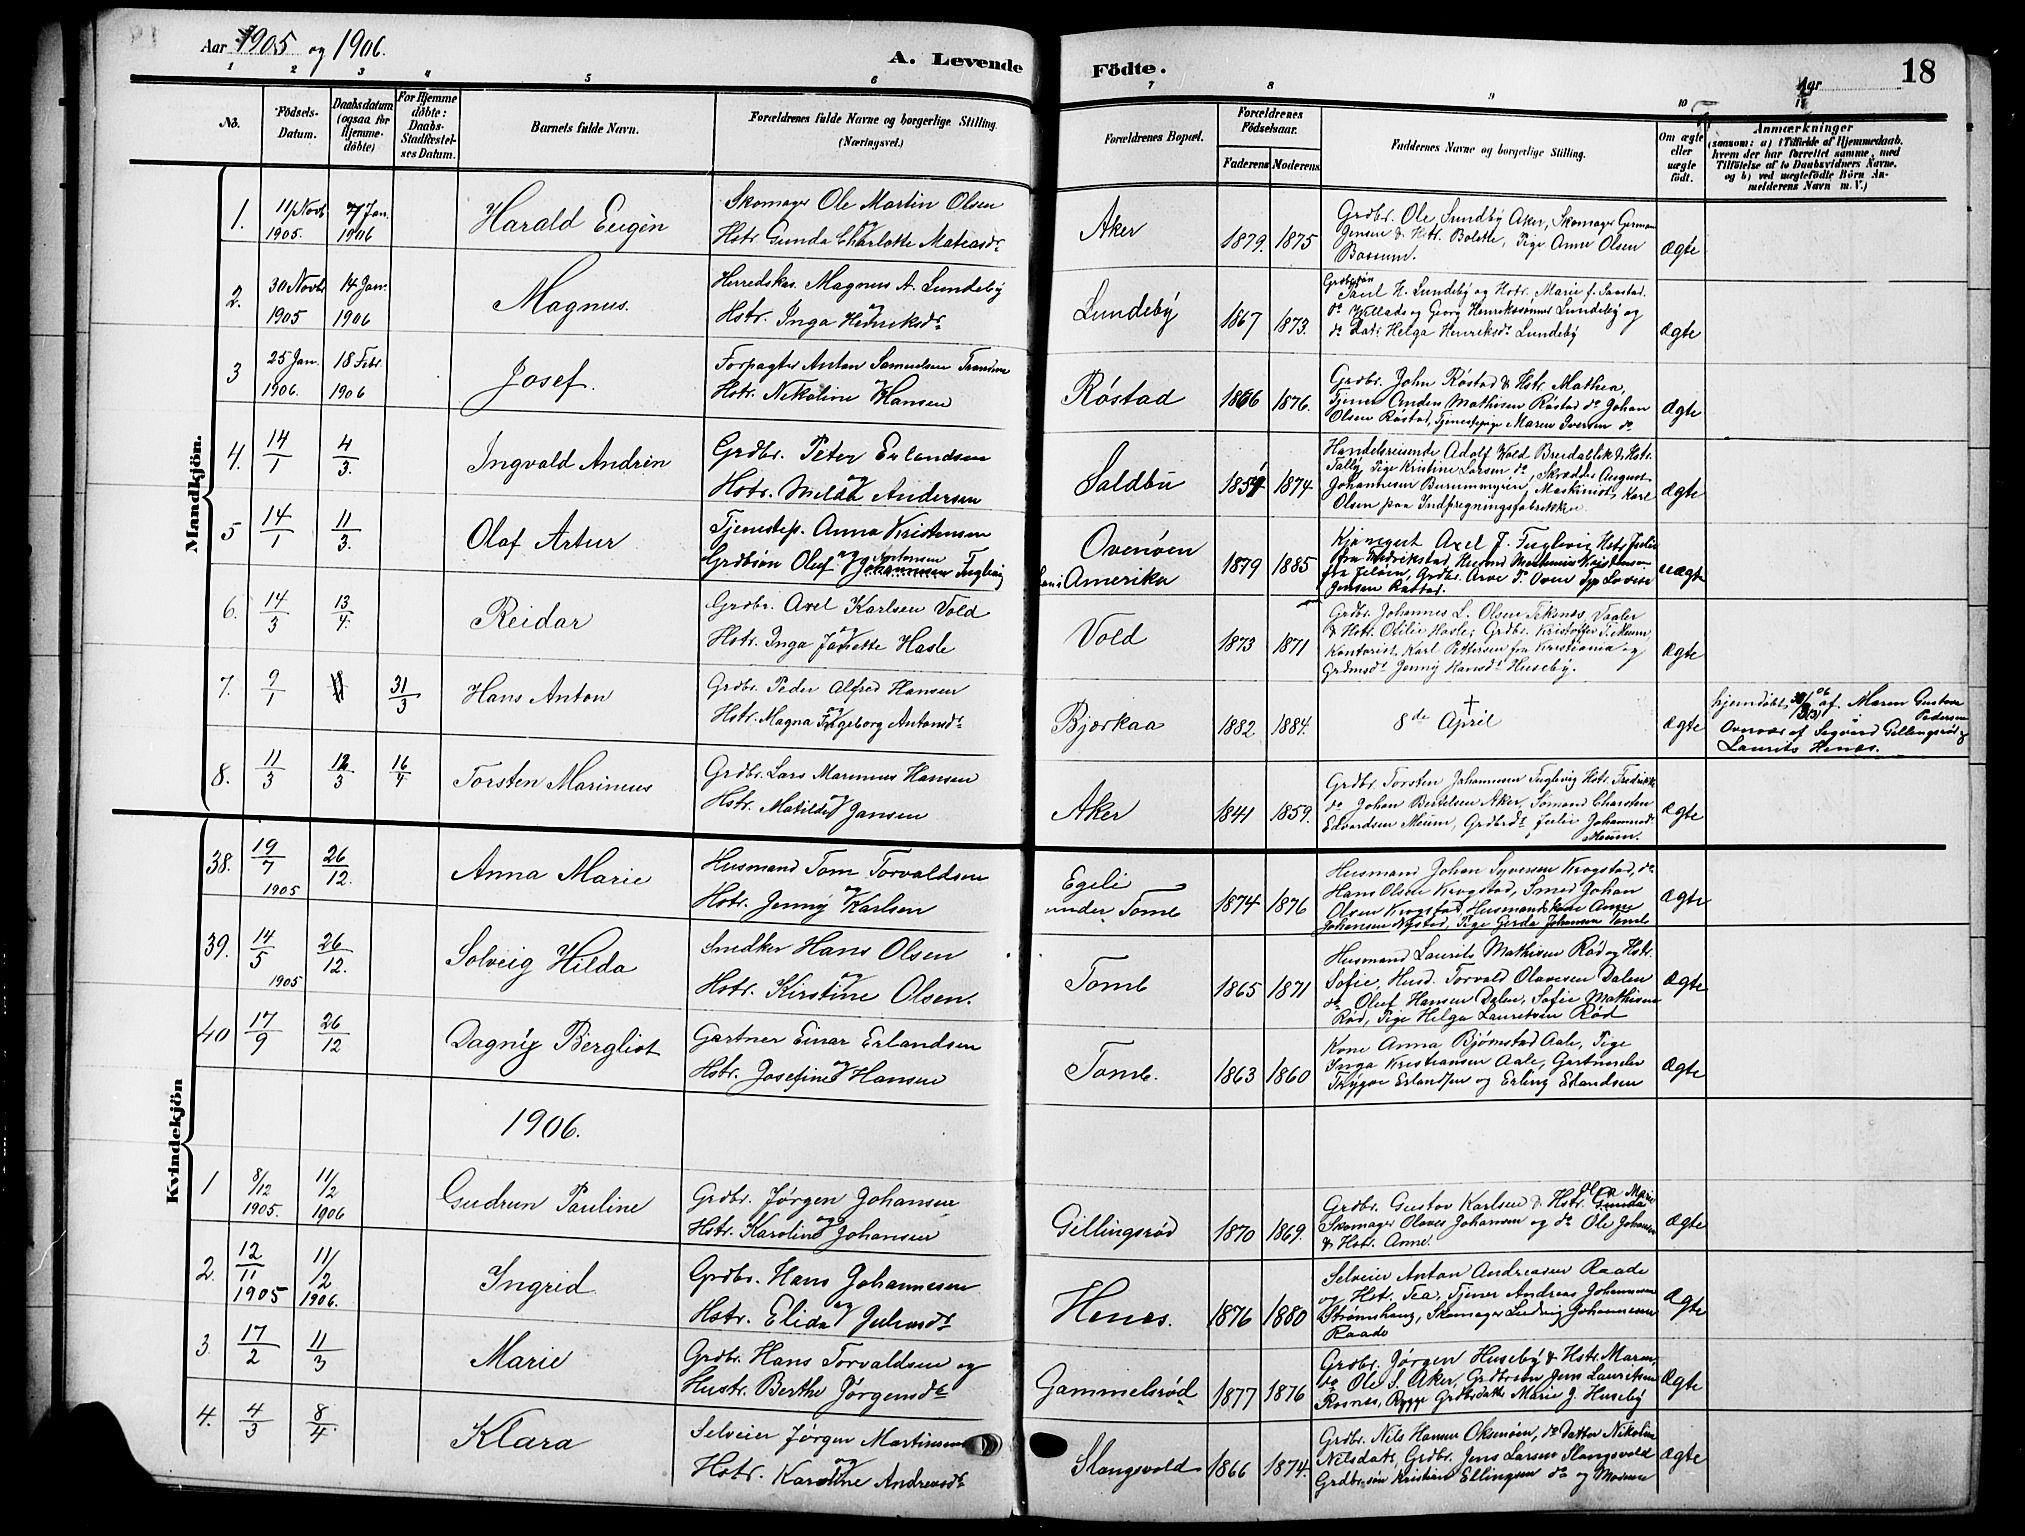 Aar 1905 og 1906.
A. Levende Födte.
Aar
18
1 2 3 4 5 6 7 8 9 10
No.
Födsels-Datum.
Daabsdatum (ogsaa for Hjemme-döbte)
For Hjemme döbte: Daabs-Stadfæstel-ses Datum.
Barnets fulde Navn.
Forældrenes fulde Navne og borgerlige Stilling.
(Næringsvei.)
Forældrenes Bopæl.
Forældrenes Födselsaar.
Faderens Moderens
Faddernes Navne og borgerlige Stilling.
Om ægte eller uægte født.
Anmærkninger
(saasom: a) i Tilfælde af Hjemmedaab, hvem der har forrettet samme, med Tilföielse af to Daabsvidners Navne. og b) ved uægtefödte Börn Anmelderens Navn m. V.)
Mandkjön.
1. 11/Novb 1905. 7 Jan. 1906 Harald Eugén
Skomager Ole Martin Olsen
og
Hstr. Gunda Charlotte Matiasdr
Aker 1879. 1875
Grdbr. Ole Lundby Aker, Skomager German
Jensen & Hstr. Bolette, Pige Anne Olsen
Bossum.
Ægte
2. 30 Novbr 1905 14 Jan. 1906 Magnus.
Herredskas. Magnus A. Lundeby
og
Hstr. Inga Henriksdr
Lundeby 1867 1873.
Paul H. Lundeby og Hstr. Marie f. Saastad.
do Willads og Georg Henrikssønner Lundeby og
do Datr. Helga Henriksdr Lundeby
ægte
3 25 Jan. 1906. 18 Febr. 1906 Josef.
Forpagter Anton Samuelsen
Hstr. Nikoline Hansen
Röstad 1866 1876.
Grdbr. John Röstad & Hstr. Mathea,
Tjener Anden Mathisen Röstad do Johan
Olsen Röstad, Tjenestepige Maren Iversen do
ægte
4. 14/1 4/3. Ingvald Andrén
Grdbr. Peter Erlandsen
og
Hstr. Milda Andersen
Saldbu 1854 1874
Handelsreisende Adolf Wold Breidablik & Hstr.
Pige Kristine Larsen do, Skrædder August
Johannesen Maskinist Karl
Olsen paa Indpregningsfabrikken.
Ægte
5 14/1 11/3. Olaf Artur
Tjenestep. Anna Kristensen
og
Grdbsön Oluf Antonsen Fuglevig
Ovenöen
Amerika 1879 1885
Axel J. Fuglevig Hstr Julie
fra Fredrikstad,
Jensen Rostad.
uægte
6. 14/3 13/4. Reidar
Grdbr. Axel Karlsen Vold
og
Hstr. Inga Janette Hasle
Vold 1873 1871
Grdbr. Johannes L. Olsen Vaaler
& Hstr. Otilie Hasle; Grdbr. Kristoffer
Kontorist Karl Pettersen fra Kristiania og
Grdmsdr Jenny Hansdr Huseby.
ægte
7. 9/1 31/3 Hans Anton
Grdbr. Peder Alfred Hansen
og
Hstr. Magna Ingeborg Antonsdr
Bjerkaa 1882 1884.
†
8de April
ægte
hjemdöbt af Maren Gustava
Pedersen
Overvær af Sigvard Gillingsröd og
Laurits Henæs.
8. 11/3 12/3 16/4 Torsten Marinius
Grdbr. Lars Marinius Hansen
og
Hstr. Matilde Jansen
Aker 1841 1859.
Grdbr. Torsten Johannesen Fuglevig Hstr. Fredrikke
do Johan Bertelsen Aker, Sömand Charsten
Edvardsen Meum, Grdbrdr Julie Johannesdr
Meum.
Ægte
Kvindekjön
38. 19/7 1905 26/12. Anna Marie
Husmand Tom Torvaldsen
og
Hstr. Jenny Karlsen
Egeli
under Tomb 1874 1876
Husmand Johan Syversen Krogstad, do
Hans Olsen Krogstad, Smed Johan
Olsen Krogstad, Husmandskone Anne
Johansen Nystad, Pige Gerda Johansen Tomb
Ægte
39. 14/5 1905 26/12. Solveig Hilda
Smedker Hans Olsen
og
Hstr. Kirstine Olsen.
Tomb 1865 1871
Husmand Laurits Mathisen Rød og Hstr.
Sofie, Husd. Torvald Olavesen Dalen
do Oluf Hansen Dalen, Sofie Mathisen
Rød, Pige Helga Lauretsen Rød
Ægte
40 17/9 26/12 Dagny Bergliot
Gartner Einar Erlandsen
og
Hstr. Josefine Hansen
Tomb. 1863 1860
Kone Anna Bjørnstad Aale, Pige
Inga Kristiansen Aale, Gartnerelev
Trygve Erlandsen og Erling Erlandsen
Ægte
1906.
1 8/12 1905. 11/2 1906 Gudrun Pauline
Grdbr. Jørgen Johansen
og
Hstr. Karoline Johansen
Gillingsrød 1870 1869.
Grdbr. Gustav Karlsen & Hstr.
Skomager Olaves Johansen og do Ole Johansen
& Hstr. Anne.
ægte
2. 12/11 1905 11/2 1906. Ingrid
Grdbr. Hans Johannesen
og
Hstr. Elida Julius dr
Henes. 1876 1880
Selveier Anton Andreasen Raade
og Hst. Tea, Tjener Andreas Johannesen
Strømshaug, Skomager Ludvig Johannesen
Raade
Ægte
3. 17/2 11/3 Marie
Grdbr. Hans Torvaldsen og
Hustr. Berthe Jørgensdr
Gammelsrød 1877 1876
Grdbr. Jørgen Huseby & Hstr. Maren,
do Ole S. Aker, Grdbrsön Jens Lauritsen
Rosnes, Rygge Grdbrdatte Marie J. Huseby
Ægte
4. 4/3 8/4 Klara
Selveier Jørgen Martinsen
og
Hstr. Karoline Andreasdr
Slangsvold 1866 1874.
Grdbr. Nils Hansen Oksenøen, do Datter Nikoline
Nilsdatt, Grdbr. Jens Larsen Slangsvold
Grdbr.sön Kristian Ellingsen do og
Ægte